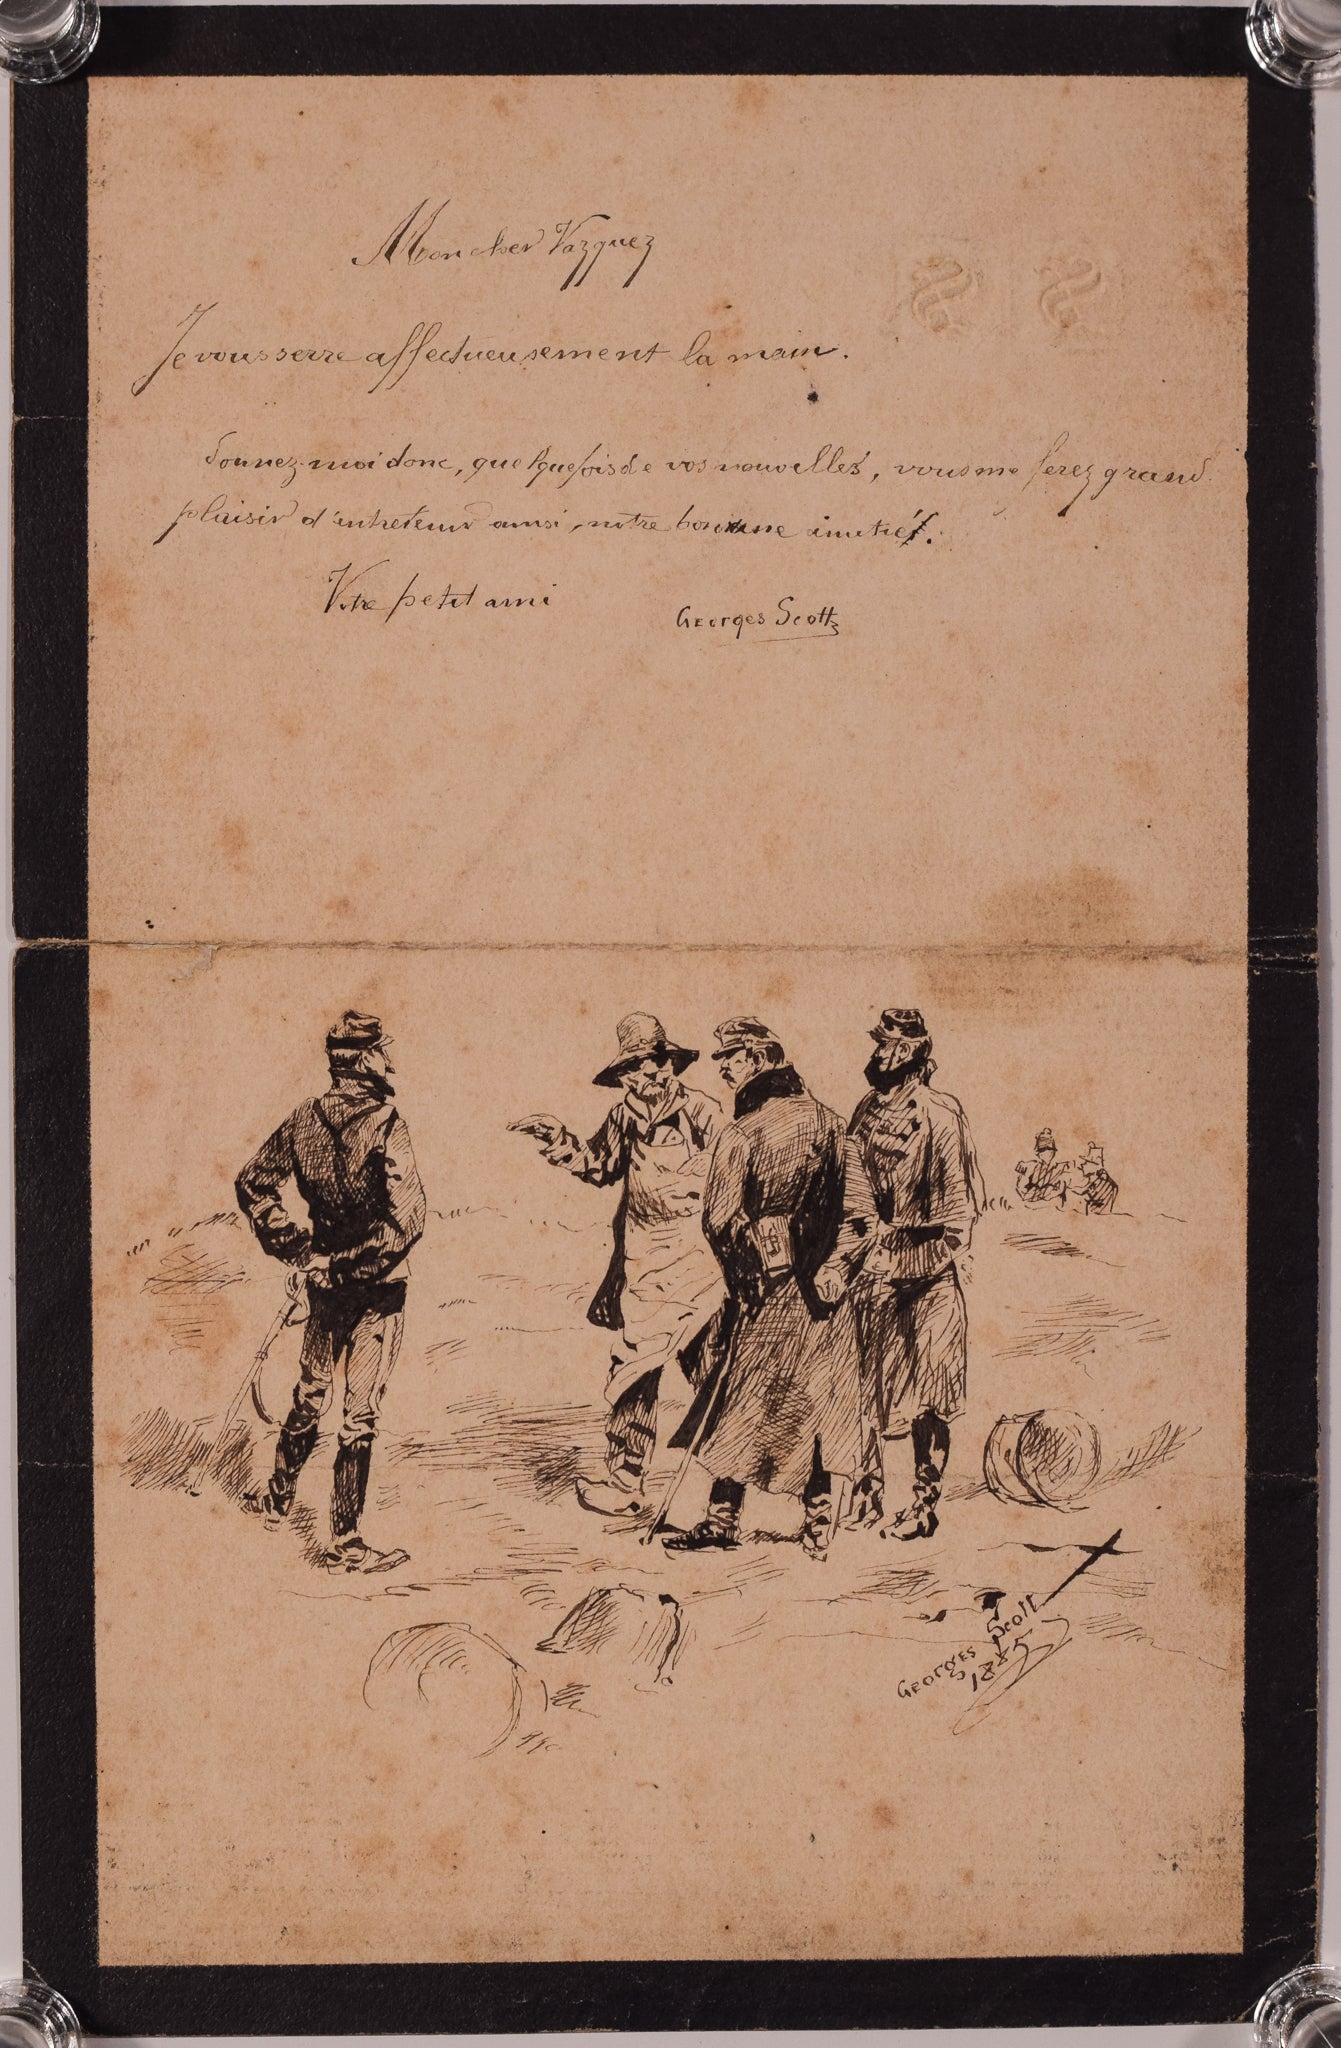 Mon cher Vazquez
Je vous serre affectueusement la main.
Donnez-moi donc, quelquefois de vos nouvelles, vous me ferez grand
plaisir d'entretenir ainsi, notre bonne amitié.
Votre petit ami
Georges Scott
Georges Scott
1885